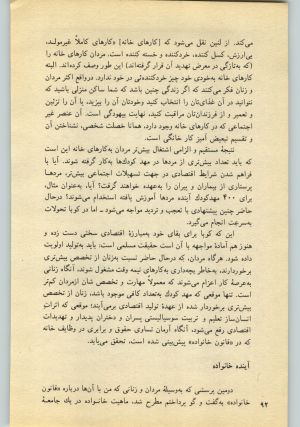 می‌کند. از لنین نقل می‌شود که [کارهای خانه] «کارهای کاملاً غیرمولد،
بی‌ارزش، کسل کننده، خردکننده و خسته کننده است. مردان کارهای خانه را
(که به‌تازگی در معرض تهدید آن قرار گرفته‌اند) این طور وصف کرده‌اند. البته
کارهای خانه به‌خودی خود چیز خردکننده‌ئی در خود ندارد. درواقع اکثر مردان
و زنان فکر می‌کنند که اگر زندگی چنین باشد که شما ساکن منزلی باشید که
بتوانید در آن غذای‌تان را انتخاب کنید وخودتان آن را بپزید، یا آن را تزئین
و تعمیر و از فرزندان‌تان مراقبت کنید، نهایت بیهودگی است. آن عنصر غیر
اجتماعی که در کارهای خانه وجود دارد، همانا خصلت شخصی، نشناختن آن
و تقسیم تبعیض آمیز کار خانگی است.
نتیجهٔ مستقیم و الزامی اشتغال بیش‌تر مردان به‌کارهای خانه این است
که باید تعداد بیش‌تری از مردها در مهد کودک‌ها به‌کار گرفته شوند. آیا با
فراهم شدن شرایط اقتصادی در جهت تسهیلات اجتماعی بیش‌تر، مردها
پرستاری از بیماران و پیران را به‌عهده خواهند گرفت؟ آیا، به‌عنوان مثال،
برای ۴۰۰ مهدکودک آینده مردها آموزش یافته استخدام می‌شوند؟ درحال
حاضر چنین پیشنهادی با تعجب و تردید مواجه می‌شود ــ اما در کوبا تحولات
به‌سرعت انجام می‌گیرد.
این که کوبا برای بقای خود به‌مبارزهٔ اقتصادی سختی دست زده و
هنوز هم آمادهٔ مواجهه با آن است حقیقت مسلمی است؛ باید به‌تولید اولویت
داده شود. هرگاه مردان، که درحال حاضر نسبت به‌زنان از تخصص بیش‌تری
برخوردارند، به‌خاطر بچه‌داری به‌کارهای نیمه وقت مشغول شوند، آنگاه زنانی
به‌عرصهٔ کار اعزام می‌شوند که معمولاً مهارت و تخصص شان ازمردان کم‌تر
است. تنها موقعی که مهد کودک به‌تعداد کافی موجود باشد، زنان از تخصص
بیش‌تری برخوردار شده از عهدهٔ تولید برمی‌آیند؛ موقعی که اثرات
انسان‌ساز تعلیم و تربیت سوسیالیستی پسران و دختران پدیدار و تهدیدات
اقتصادی رفع می‌شود، آنگاه آرمان تساوی حقوق و برابری در وظائف خانه
که در «قانون خانواده» پیش‌بینی شده است، تحقق می‌یابد.
آینده خانواده
دومین پرسشی که به‌وسیلهٔ مردان و زنانی که من با آن‌ها درباره «قانون
خانواده» به‌گفت و گو پرداختم مطرح شد، ماهیت خانواده در یک جامعهٔ
۹۲